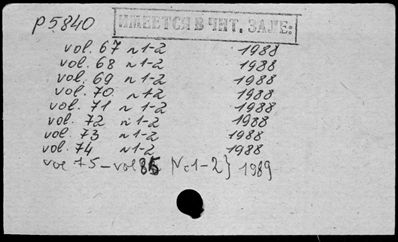 p5840
ИМЕЕТСЯ В ЧИТ. ЗАЛЕ:
vol. 67 n 1-2 1988
vol. 68 n 1-2 1988
vol. 69 n 1-2 1988
vol. 70 n 1-2 1988
vol. 71 n 1-2 1988
vol. 72 n 1-2 1988
vol. 73 n 1-2 1988
vol. 74 n 1-2 1988
vol 75 - vol 86 No1-2} 1989